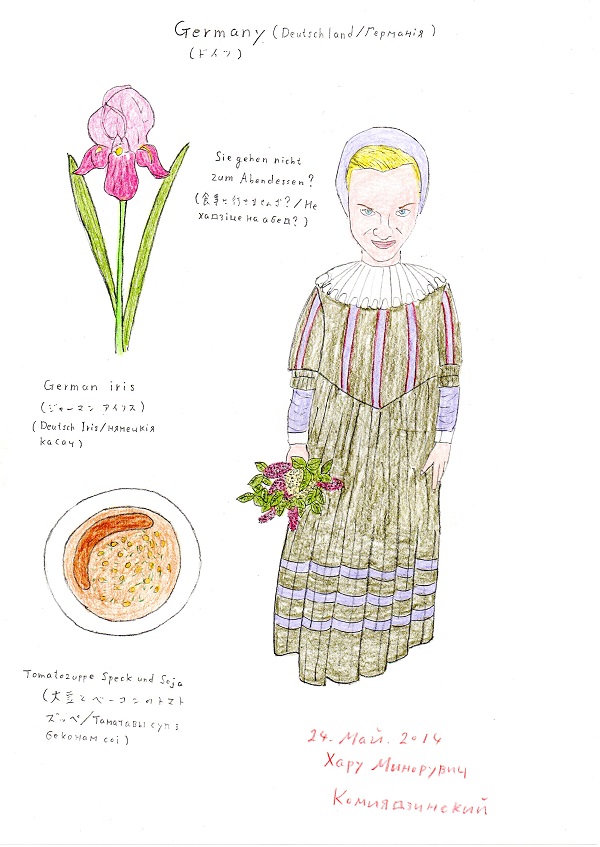 Germany (Deutschland/Германія)
(ドイツ)
Sie gehen nicht
zum Abendessen?
(食事に行きませんか?/Не
хадзіце на абед?)
German iris
(ジャーマン アイリス)
(Deutsch Iris/нямецкія
касач)
Tomatozuppe Speck und Soja
(大豆とベーコンのトマト
ズッペ/Таматавы суп з
беконам соі)
24. Май. 2014
Хару Минорувич
Комиядзинский